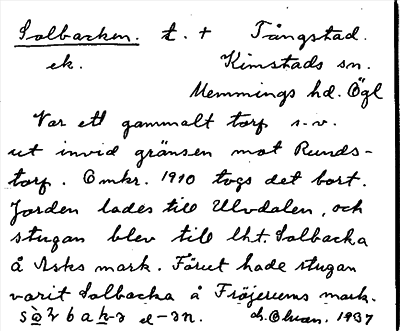 Solbacken. t. + Tångstad.
ek. Kimstads sn.
Memmings hd. Ögl
Var ett gammalt torp s.v.
ut invid gränsen mot Runds-
torp. Omkr. 1910 togs det bort.
Jorden lades till Ulvdalen, och
stugan blev till lht. Solbacka
å Asks mark. Förut hade stugan
varit Solbacka å Fröjerums mark.
1937